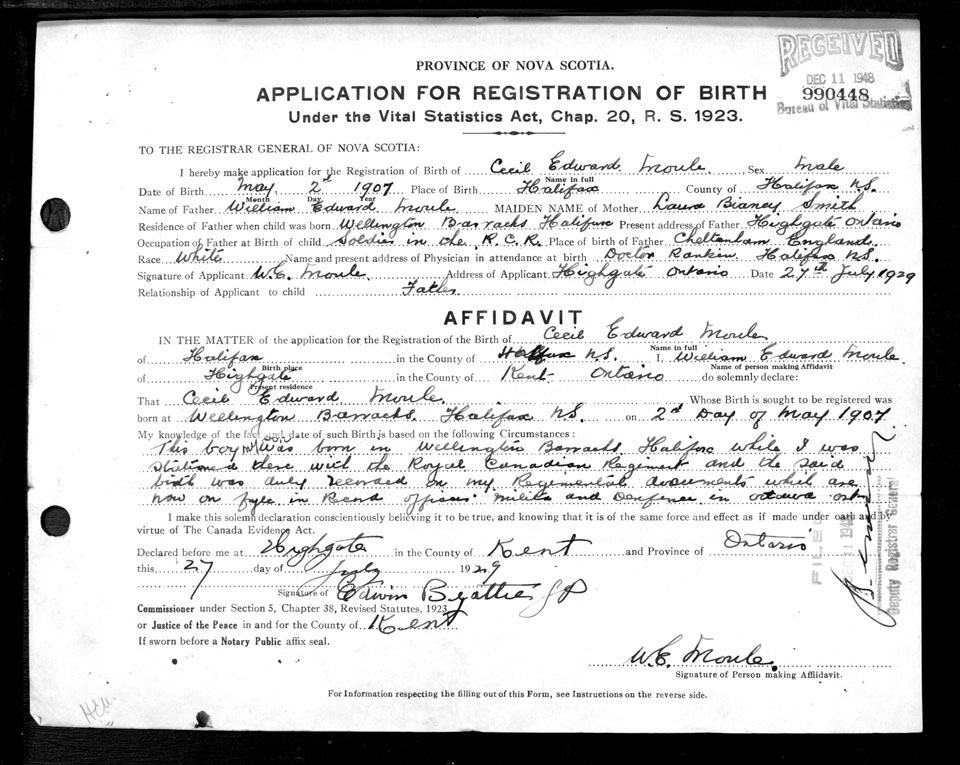 RECEIVED
DEC 11 1948
990448
Bureau of Vital Statistics
PROVINCE OF NOVA SCOTIA.
APPLICATION FOR REGISTRATION OF BIRTH
Under the Vital Statistics Act, Chap. 20, R. S. 1923.
TO THE REGISTRAR GENERAL OF NOVA SCOTIA:
I hereby make application for the Registration of Birth of Cecil Edward Moule Sex Male
Name in full
Date of Birth May 2d 1907 Place of Birth Halifax County of Halifax N.S.
Month Day Year
Name of Father William Edward Moule MAIDEN NAME of Mother Laura Smith
Residence of Father when child was born Wellington Barracks Halifax Present address of Father Highgate Ontario
Occupation of Father at Birth of child Soldier in the R.C.R. Place of birth of Father Cheltenham England
Race White Name and present address of Physician in attendance at birth Doctor Rankin Halifax N.S.
Signature of Applicant W.E. Moule Address of Applicant Highgate Ontario Date 27th July 1929
Relationship of Applicant to child Father
AFFIDAVIT
IN THE MATTER of the application for the Registration of the Birth of Cecil Edward Moule
Name in full
of Halifax in the County of Halifax N.S. I, William Edward Moule
Birth place Name of person making Affidavit
of Highgate in the County of Kent Ontario do solemnly declare:
Present residence
That Cecil Edward Moule Whose Birth is sought to be registered was
born at Wellington Barracks. Halifax N.S. on 2d Day of May 1907
My knowledge of the fact and date of such Birth is based on the following Circumstances:
This boy was born in Wellington Barracks Halifax while I was
stationed there with the Royal Canadian Regiment and the said
birth was duly recorded on my Regimental documents which are
now on in officer militia and Defence in ottawa ont
I make this solemn declaration conscientiously believing it to be true, and knowing that it is of the same force and effect as if made under oath and by
virtue of The Canada Evidence Act.
Declared before me at Highgate in the County of Kent and Province of Ontario
this 27 day of July 1929
Signature of Edwin Beattie JP
Commissioner under Section 5, Chapter 38, Revised Statutes, 1923
or Justice of the Peace in and for the County of Kent
If sworn before a Notary Public affix seal.
W.E. Moule
Signature of Person making Affidavit.
For Information respecting the filling out of this Form, see Instructions on the reverse side.
FILED
DEC 11 1948
Deputy Registrar General